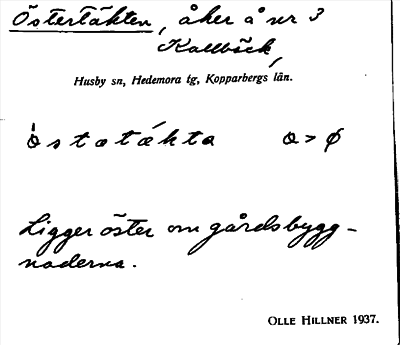 Östertäkten, åker å nr 3
Kallbäck,
Husby sn, Hedemora tg, Kopparbergs län.
ò s t a t ǽ k t a   a > ø
Ligger öster om gårdsbygg-
naderna.
OLLE HILLNER 1937.